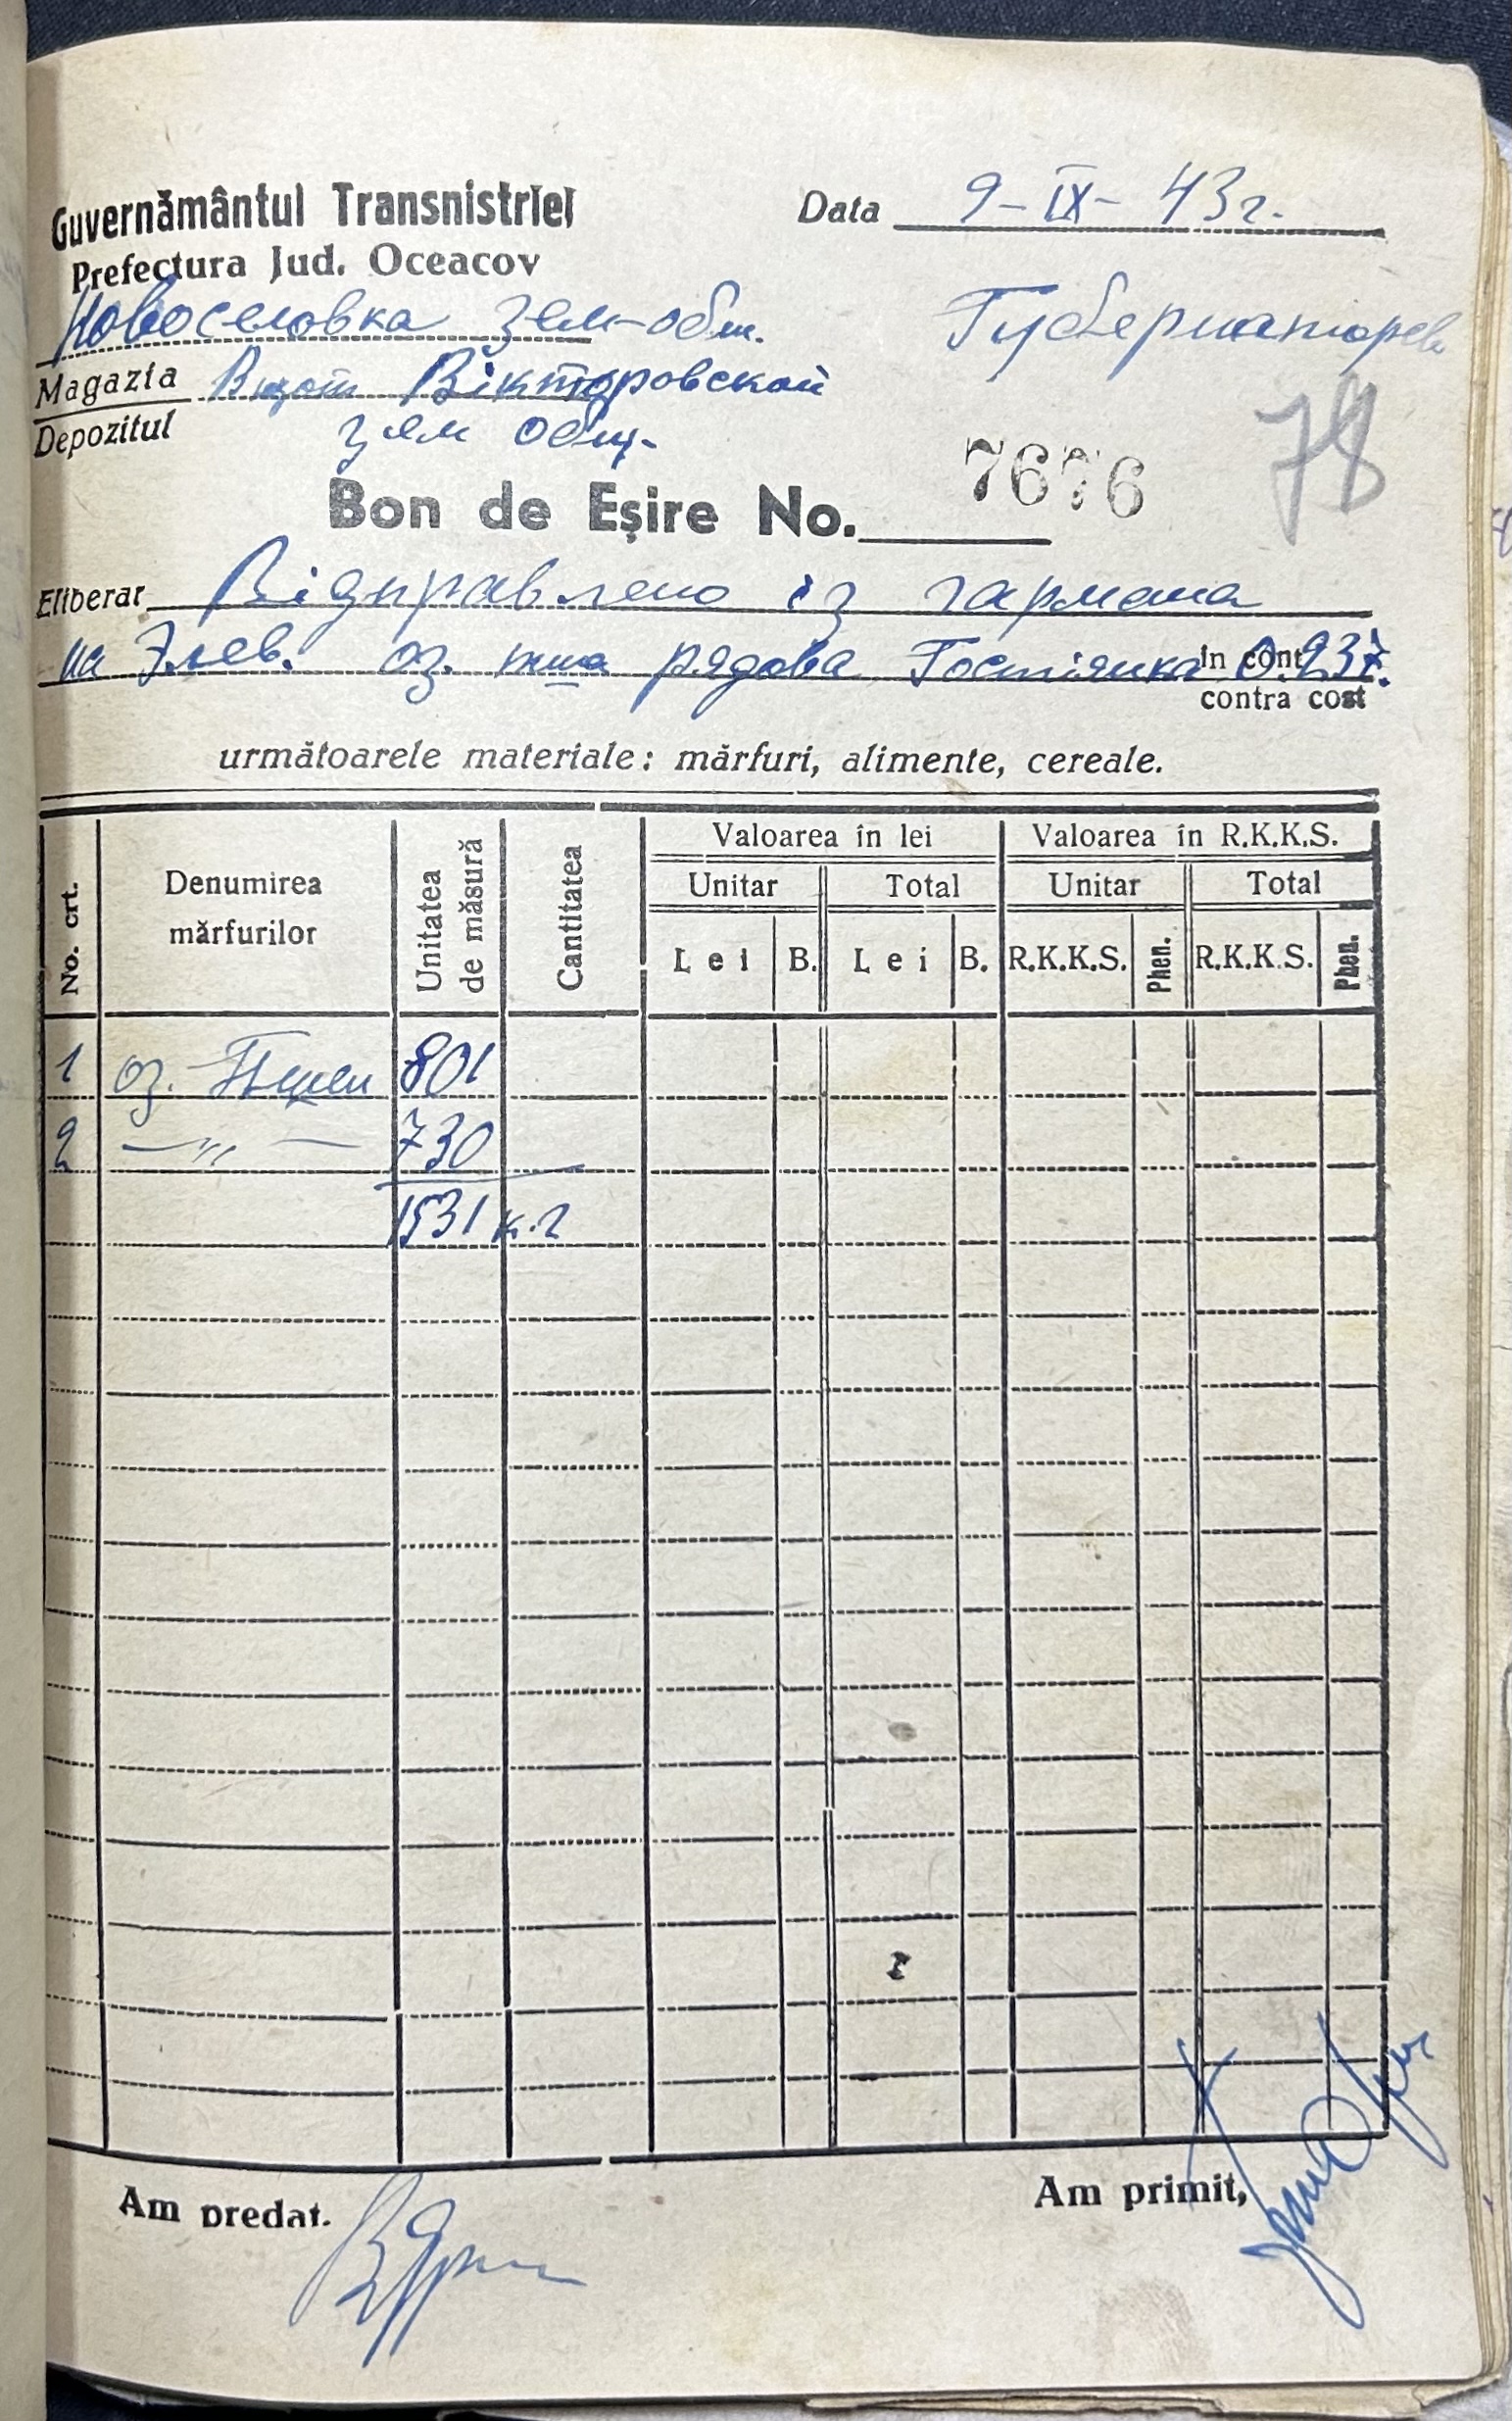 Guvernământul Transnistriei
Data 9-IX-43г.
Prefectura Jud. Oceacov
Новоселовка зем-общ.
Губернаторов
Magazia Вікторовской
Depozitul зем общ.
78
Bon de Eşire No. 7676
Eliberar Відправлено із гармана
на Элев. оз. пша рядова Гостіянка 0.237.
în cont
contra cost
următoarele materiale: mărfuri, alimente, cereale.
No. crt. Denumirea mărfurilor Unitatea de măsură Cantitatea Valoarea în lei Valoarea în R.K.K.S.
Unitar Total Unitar Total
Lei B. Lei B. R.K.K.S. Phen. R.K.K.S. Phen.
1 оз. Пшен 801
2 —„— 730
1531 к.г
Am predat.
Am primit,